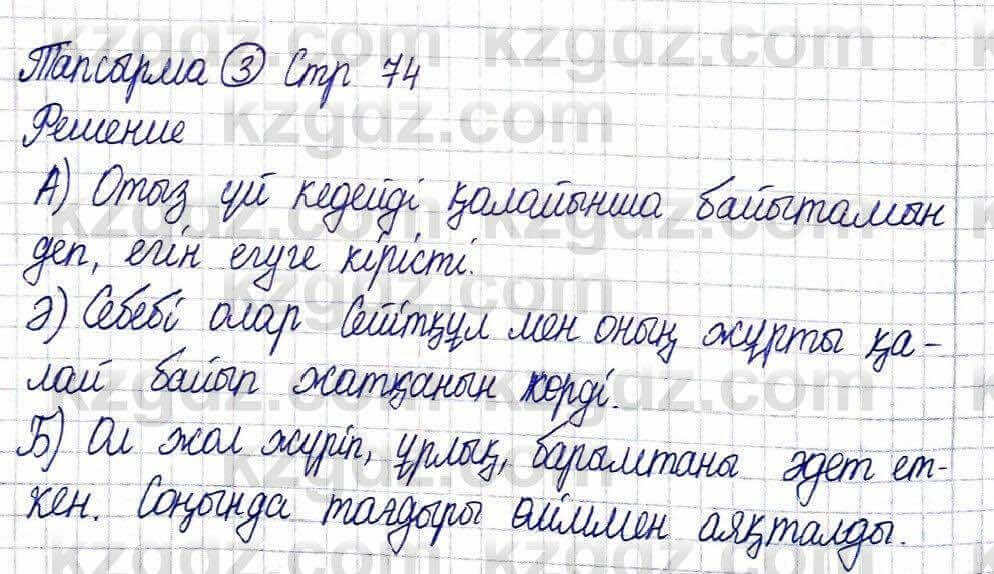 Тапсырма ③ Стр 74
Решение
А) Отыз үй кедейді қалайынша байытамын
деп, егін егуге кірісті.
Ә) Себебі олар Сейітқұл мен оның жұрты қа-
лай байып жатқанын көрді.
Б) Ол жол жүріп, ұрлық, барымтаны әдет ет-
кен. Соңында тағдыры өліммен аяқталды.
kzgdz.com